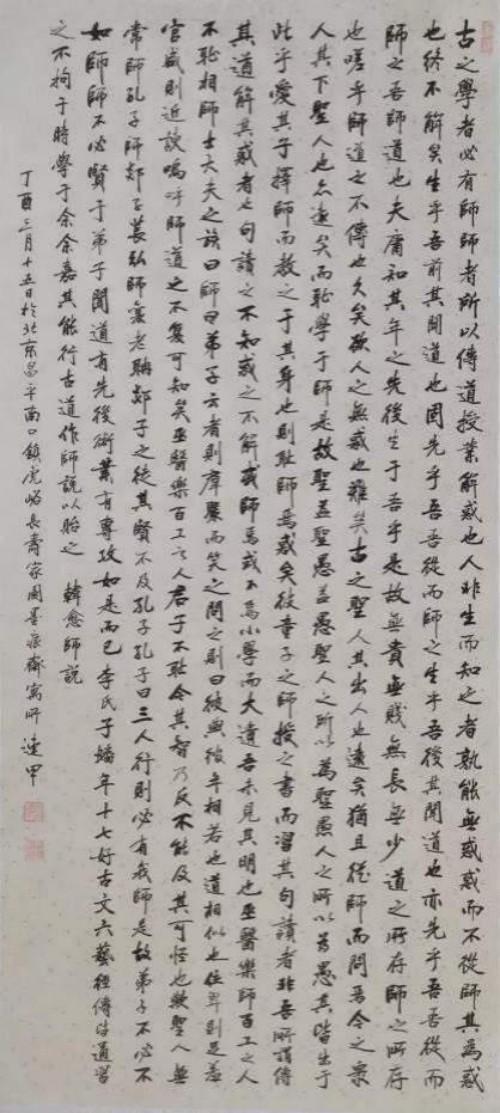 古之學者必有師師者所以傳道授業解惑也人非生而知之者孰能無惑惑而不從師其為惑
也終不解矣生乎吾前其聞道也固先乎吾吾從而師之生乎吾後其聞道也亦先乎吾吾從而
師之吾師道也夫庸知其年之先後生于吾乎是故無貴無賤無長無少道之所存師之所存
也嗟乎師道之不傳也久矣欲人之無惑也難矣古之聖人其出人也遠矣猶且從師而問焉今之衆
人其下聖人也亦遠矣而恥學于師是故聖益聖愚益愚聖人之所以為聖愚人之所以為愚其皆出于
此乎愛其子擇師而教之于其身也則恥師焉惑矣彼童子之師授之書而習其句讀者非吾所謂傳
其道解其惑者也句讀之不知惑之不解或師焉或不焉小學而大遺吾未見其明也巫醫樂師百工之人
不恥相師士大夫之族曰師曰弟子云者則群聚而笑之問之則曰彼與彼年相若也道相似也位卑則足羞
官盛則近諛嗚呼師道之不復可知矣巫醫樂百工之人君子不恥今其智乃反不能及其可怪也歟聖人無
常師孔子師郯子萇弘師襄老聃郯子之徒其賢不及孔子孔子曰三人行則必有我師是故弟子不必不
如師師不必賢于弟子聞道有先後術業有專攻如是而已李氏子蟠年十七好古文六藝經傳皆通習
之不拘于時學于余余嘉其能行古道作師說以貽之 韓愈師説
丁酉三月十五日於北京昌平南口鎮虎峪長壽家園墨痕齋寓所 達甲